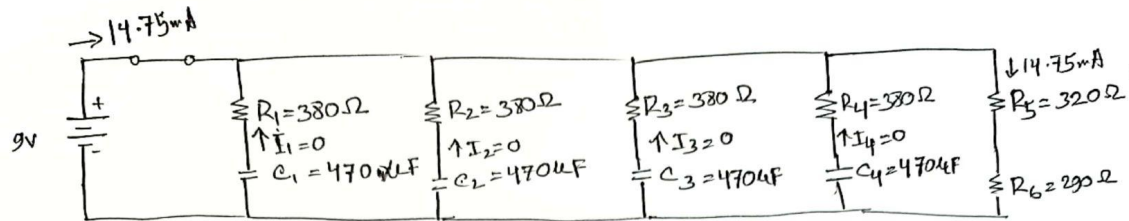 →14.75mA
↓14.75mA
9V
+
-
R₁=380Ω
↑I₁=0
C₁=470µF
R₂=380Ω
↑I₂=0
C₂=470µF
R₃=380Ω
↑I₃=0
C₃=470µF
R₄=380Ω
↑I₄=0
C₄=470µF
R₅=320Ω
R₆=290Ω